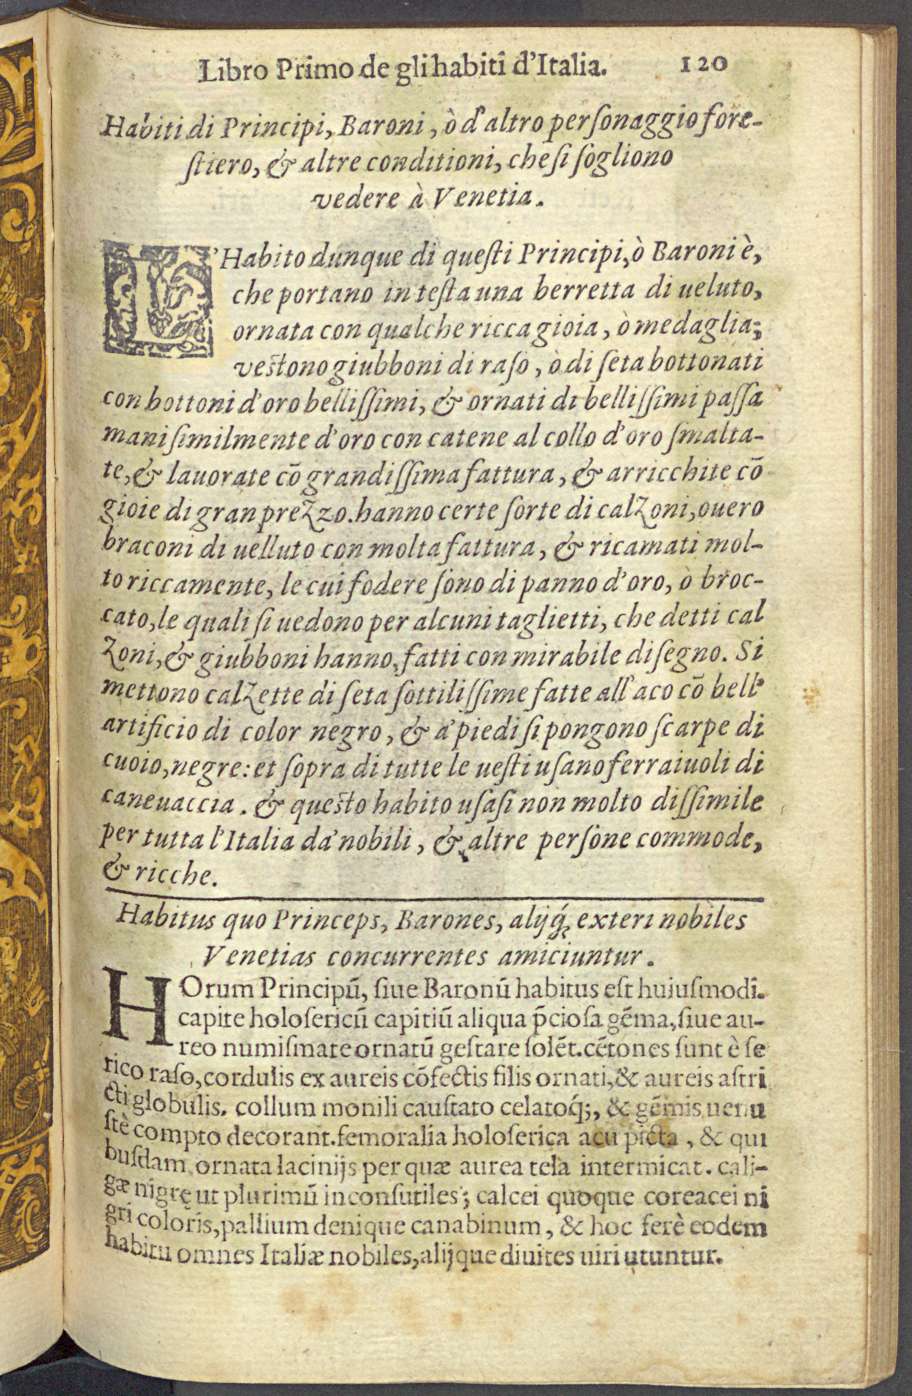 Libro Primo de gli habiti d'Italia. 120
Habiti di Principi, Baroni, ò d'altro personaggio fore-
stiero, & altre conditioni, che si sogliono
vedere à Venetia.
L'Habito dunque di questi Principi, ò Baroni è,
che portano in testa una berretta di ueluto,
ornata con qualche ricca gioia, ò medaglia;
vestono giubboni di raso, ò di seta bottonati
con bottoni d'oro bellissimi, & ornati di bellissimi passa
mani similmente d'oro con catene al collo d'oro smalta-
te, & lauorate cō grandissima fattura, & arricchite cō
gioie di gran prezzo. hanno certe sorte di calzoni, ouero
braconi di uelluto con molta fattura, & ricamati mol-
to riccamente, le cui fodere sono di panno d'oro, ò broc-
cato, le quali si uedono per alcuni taglietti, che detti cal
zoni, & giubboni hanno, fatti con mirabile disegno. Si
mettono calzette di seta sottilissime fatte all'aco cō bell'
artificio di color negro, & a' piedi si pongono scarpe di
cuoio, negre: et sopra di tutte le uesti usano ferraiuoli di
caneuaccia. & questo habito usasi non molto dissimile
per tutta l'Italia da' nobili, & altre persone commode,
& ricche.
Habitus quo Princeps, Barones, alijq́; exteri nobiles
Venetias concurrentes amiciuntur.
HOrum Principū, siue Baronū habitus est huiusmodi.
capite holosericū capitiū aliqua p̄ciosa gēma, siue au-
reo numismate ornatū gestare solēt. cētones sunt è se
rico raso, cordulis ex aureis cōfectis filis ornati, & aureis astri
cti globulis. collum monili caustato celatoq́;, & gēmis uenu
stè compto decorant. femoralia holoserica acu picta, & qui
busdam ornata lacinijs per quæ aurea tela intermicat. cali-
gæ nigrę ut plurimū inconsutiles; calcei quoque coreacei ni
gri coloris, pallium denique canabinum, & hoc ferè eodem
habitu omnes Italiæ nobiles, alijque diuites uiri utuntur.